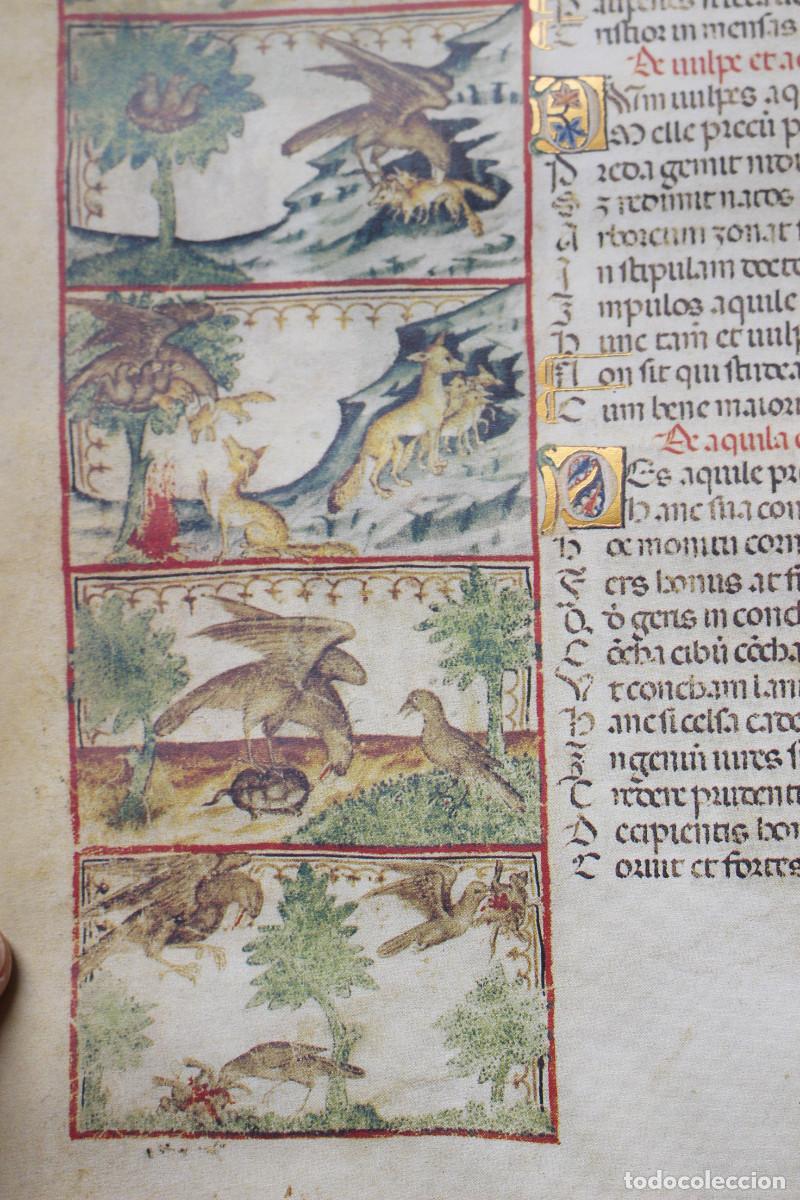 nstior in mensas
De uulpe et a
Dum uulpes aq
Melle precū p
Preda gemit nidu
redimit natos
Arboreum zonat
In stipulam docto
Impulos aquile
Hunc tam et uulp
Non sit qui studea
Cum bene maiori
De aquila
Pes aquile pr
hanc sua con
Hoc monitu corni
bonus at fi
geris in conch
Cōcha cibū cōcha
Vt concham lani
Hanc si celsa cado
Ingeniū uires
Credere prudenti
Decipientis bon
Coruit et fortes
todocoleccion